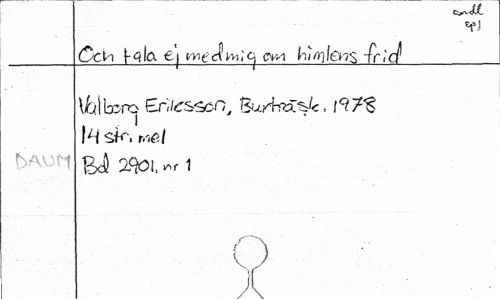 andl
ep1
Och tala ej med mig om himlens frid
Valborg Eriksson, Burträsk. 1978
14 str. mel
DAUM
Bd 2901. nr 1